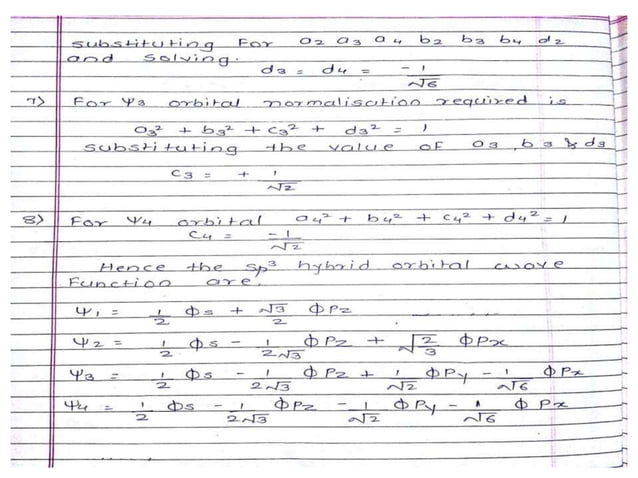 substituting For a2 a3 a4 b2 b3 b4 d2
and solving.
d3 = d4 = -1/√6
7) For Ψ3 orbital normalisation required is
a3² + b3² + c3² + d3² = 1
substituting the value of a3, b3 & d3
c3 = + 1/√2
8) For Ψ4 orbital a4² + b4² + c4² + d4² = 1
c4 = -1/√2
Hence the sp³ hybrid orbital wave
Function are.
Ψ1 = 1/2 Φs + √3/2 ΦPz
Ψ2 = 1/2 Φs - 1/2√3 ΦPz + √2/3 ΦPx
Ψ3 = 1/2 Φs - 1/2√3 ΦPz + 1/√2 ΦPy - 1/√6 ΦPx
Ψ4 = 1/2 Φs - 1/2√3 ΦPz - 1/√2 ΦPy - 1/√6 ΦPx